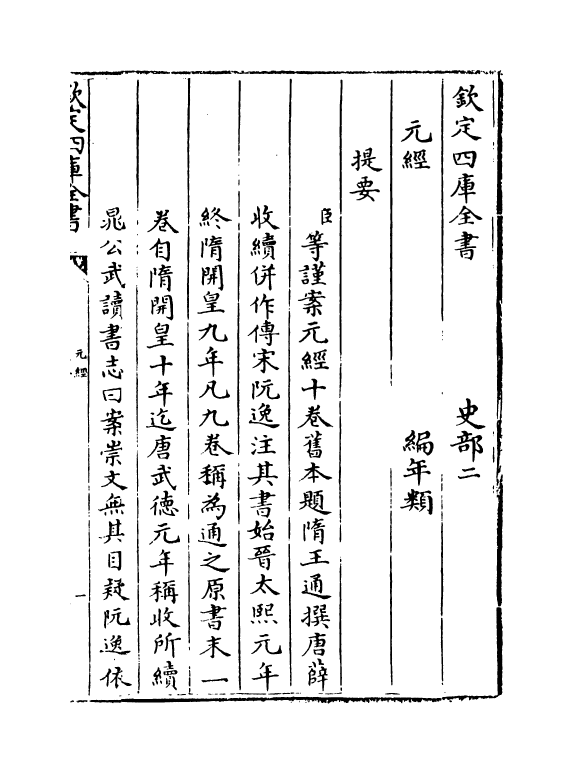 欽定四庫全書　史部二
元經　編年類
提要
臣等謹案元經十卷舊本題隋王通撰唐薛
收續併作傳宋阮逸注其書始晉太熙元年
終隋開皇九年凡九卷稱為通之原書末一
卷自隋開皇十年迄唐武德元年稱收所續
晁公武讀書志曰案崇文無其目疑阮逸依
欽定四庫全書
元經
一